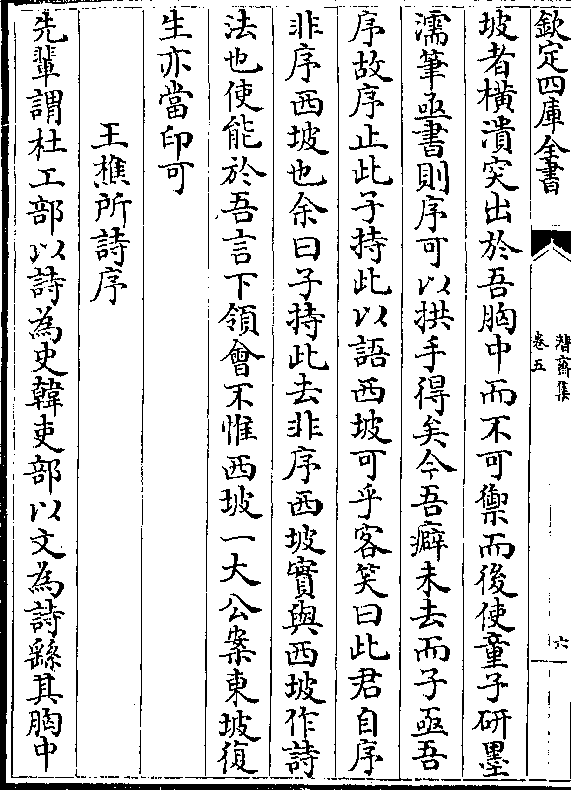 欽定四庫全書
潛齋集
卷五
六
坡者橫潰突出於吾胸中而不可禦而後使童子研墨
濡筆亟書則序可以拱手得矣今吾癖未去而子亟吾
序故序止此子持此以語西坡可乎客笑曰此君自序
非序西坡也余曰子持此去非序西坡實與西坡作詩
法也使能於吾言下領會不惟西坡一大公案東坡復
生亦當印可
王樵所詩序
先輩謂杜工部以詩為史韓吏部以文為詩繇其胸中